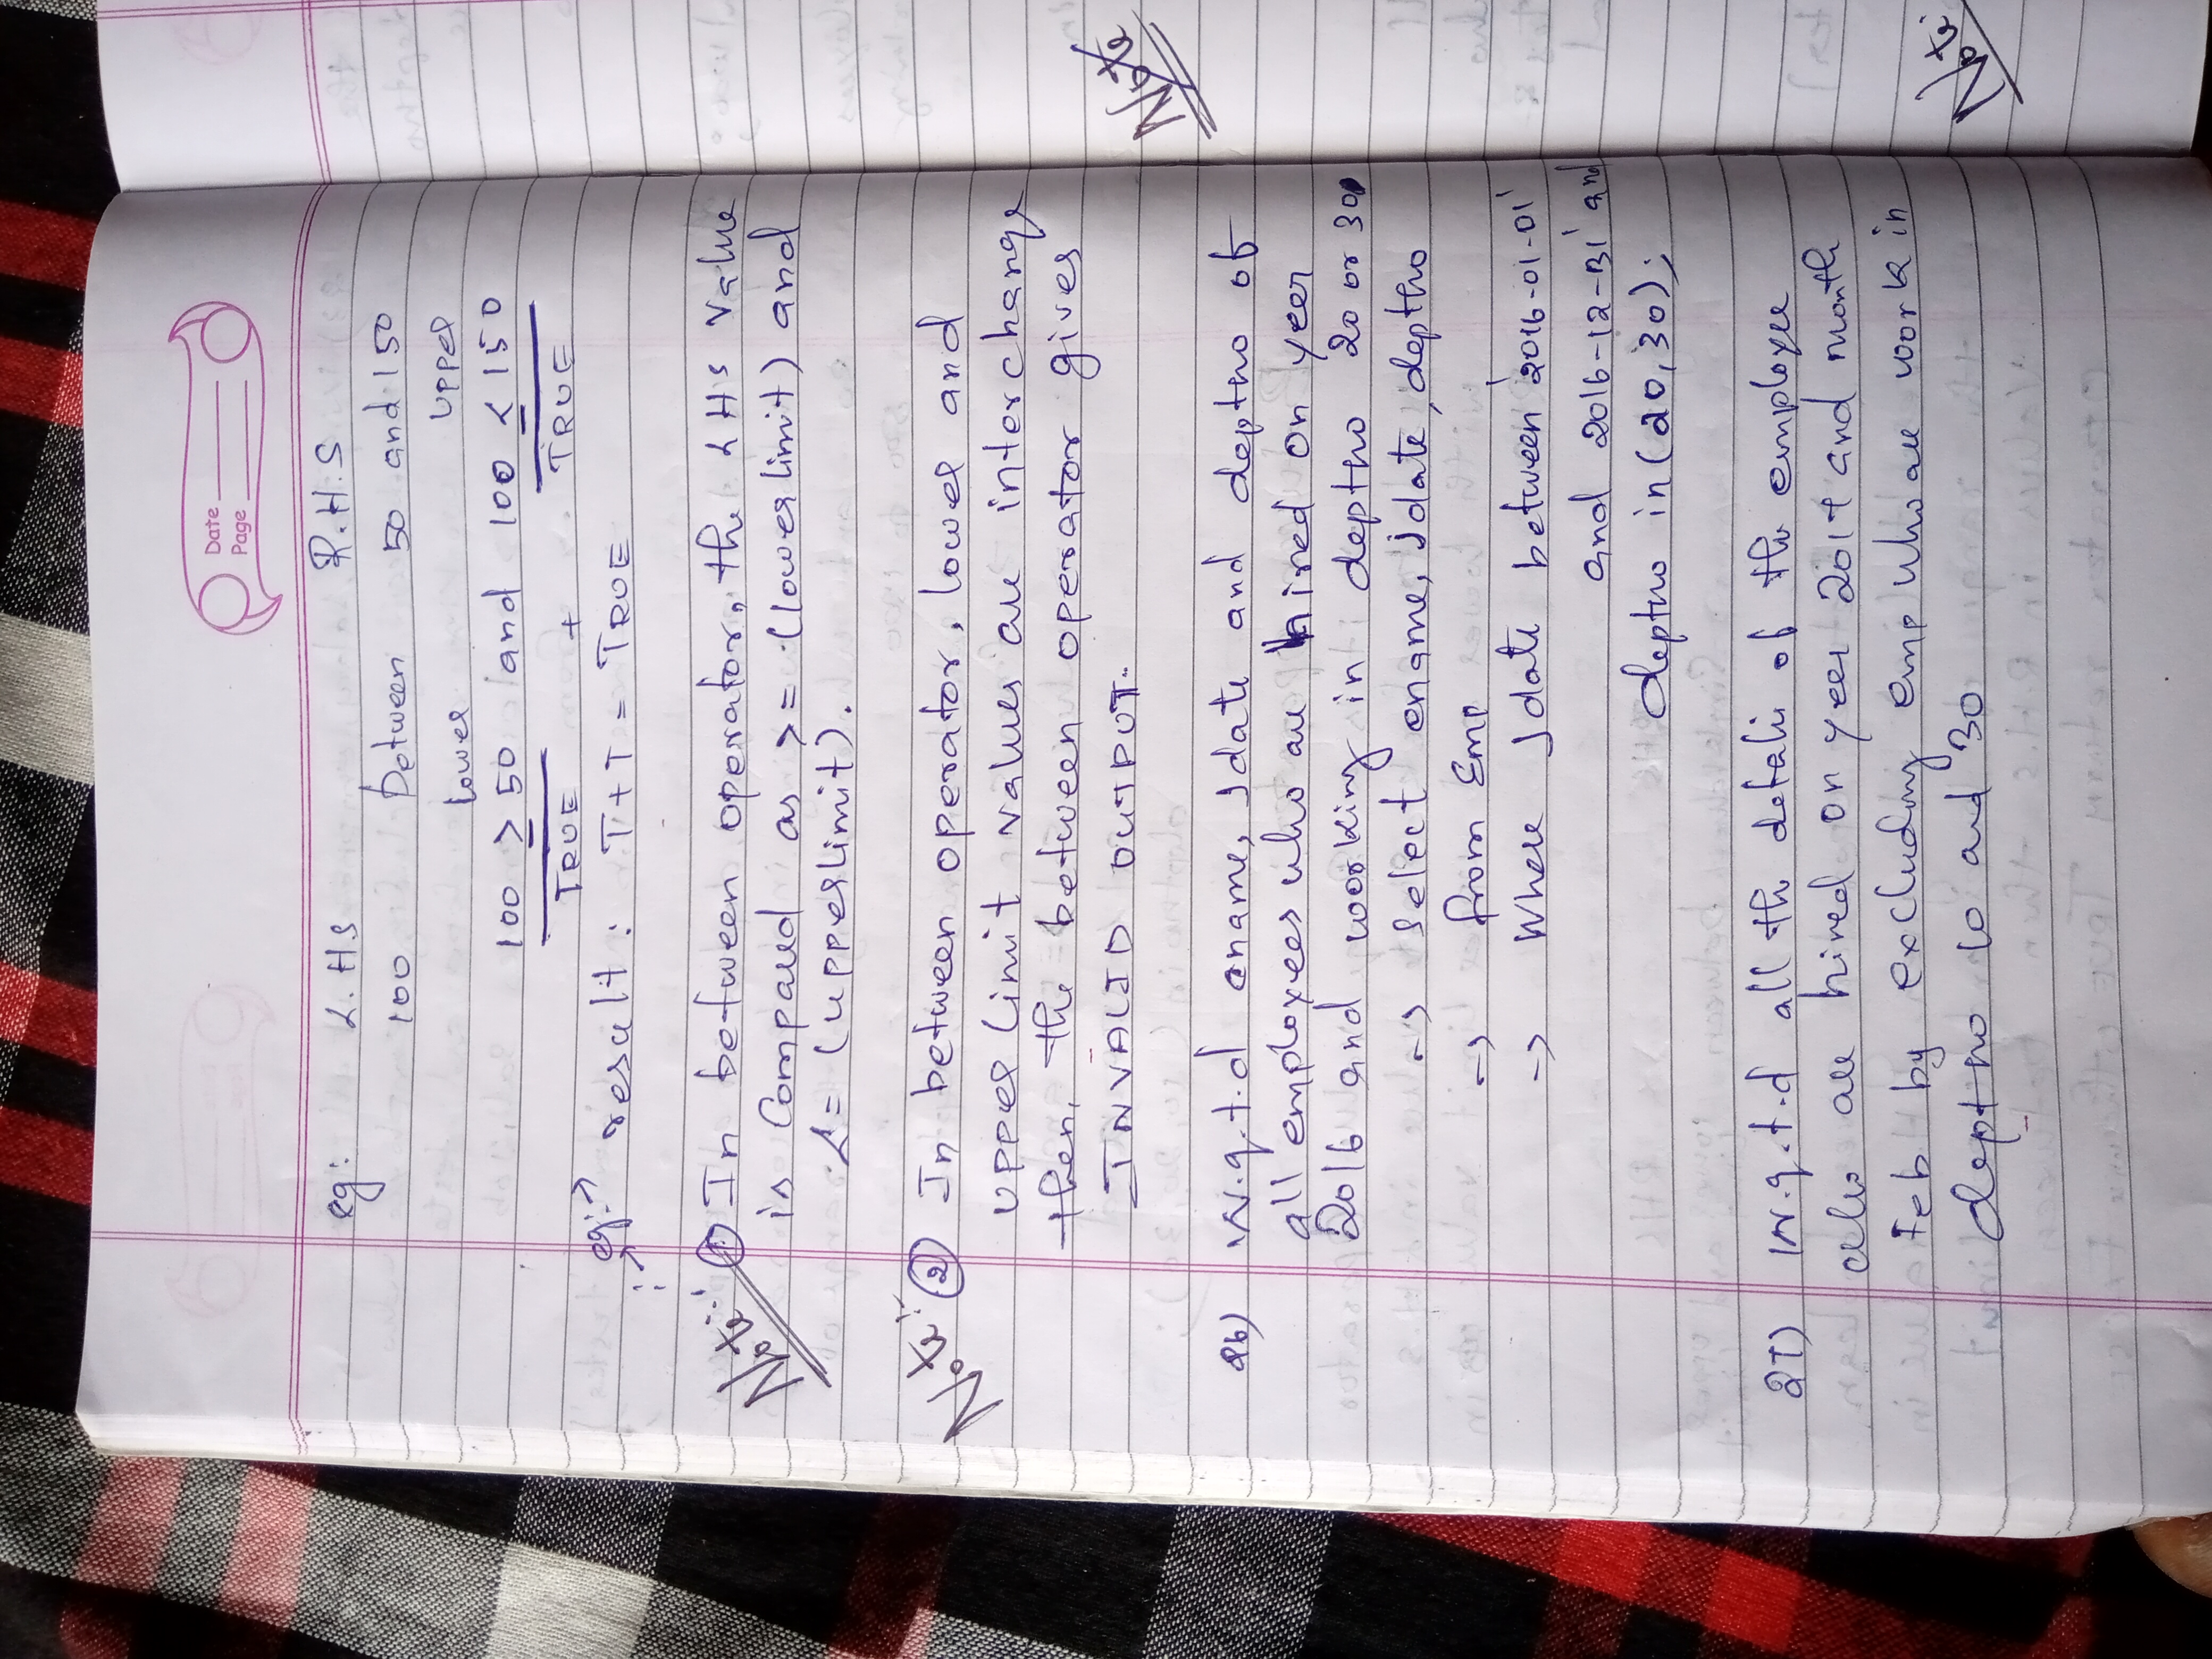 Date
Page
eg: L.HS R.H.S
100 between 50 and 150
lower upper
100 ≥ 50 and 100 ≤ 150
TRUE + TRUE
eg:→ result: T+T = TRUE
Note:- ① In between operator, the LHS value
is Compared as >= (lowerlimit) and
<= (upperlimit).
Note:- ② In between operator, lower and
upper limit values are interchange
then, the between operator gives
INVALID OUTPUT.
26) W.q.t.d ename, Jdate and deptno of
all employees who are hired on year
2016 and working in deptno 20 or 30
-> Select ename, Jdate, deptno
-> from Emp
-> Where Jdate between '2016-01-01'
and 2016-12-31' and
deptno in (20,30);
27) W.q.t.d all the details of the employee
who are hired on year 2017 and month
Feb by excluding emp who are work in
deptno 10 and 30
Note
Note: